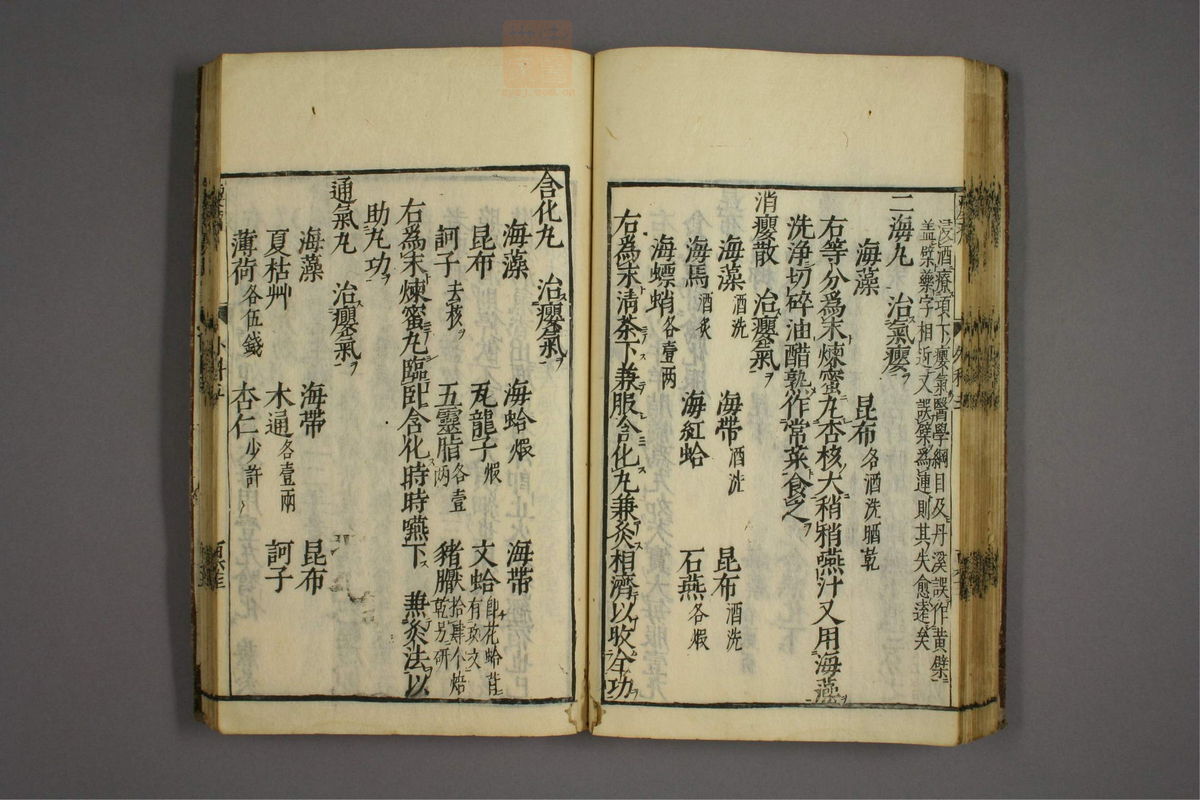 浸酒療項下癭氣醫學綱目及丹溪誤作黃檗
盖檗藥字相近又誤檗爲連則其失愈遠矣
二海丸　治氣癭ヲ
海藻　昆布各酒洗晒乾
右等分爲末煉蜜丸杏核大稍稍嚥汁又用海藻
洗浄切碎油醋熟作常菜食之
消癭散　治癭氣ヲ
海藻酒洗　海帶酒洗　昆布酒洗
海馬酒炙　海紅蛤　石燕各煆
海螵蛸各壹兩
右爲末淸茶下兼服含化丸兼灸相濟以收全功
含化丸　治癭氣ヲ
海藻　海蛤煆　海帶
昆布　瓦龍子煆　文蛤即花蛤背有攻文
訶子去核　五靈脂各壹兩　猪靨拾肆个焙乾另研
右爲末煉蜜丸臨臥含化時時嚥下　兼灸法以
助丸功
通氣丸　治癭氣ヲ
海藻　海帶　昆布
夏枯艸　木通各壹兩　訶子
薄荷各伍錢　杏仁少許